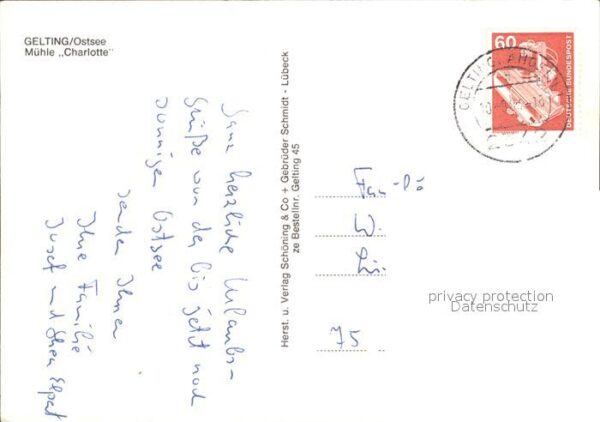 GELTING/Ostsee
Mühle „Charlotte"
Ganz herzliche Urlaubs-
Grüße von der bis jetzt noch
sonnigen Ostsee
senden Ihnen
Ihre Familie
Josef und
Herst. u. Verlag Schöning & Co + Gebrüder Schmidt · Lübeck
ze Bestellnr. Gelting 45
60
DEUTSCHE BUNDESPOST
GELTING, ANGELN
Fam.
W.
75
privacy protection
Datenschutz